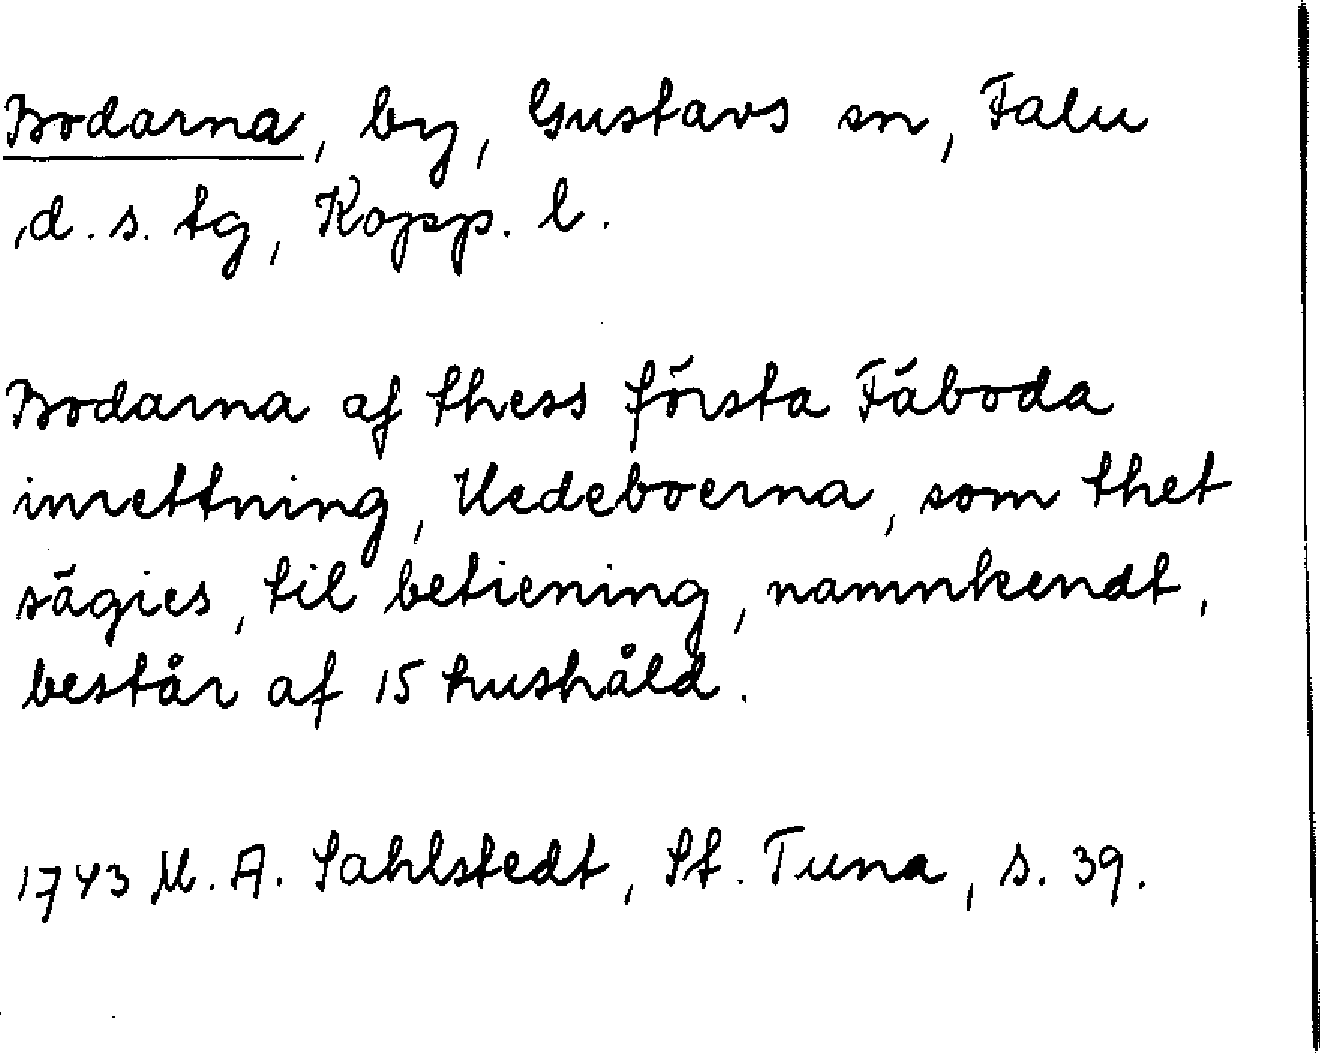 Bodarna, by, Gustavs sn, Falu
d. s. tg, Kopp. l.
Bodarna af thess första Fäboda
inrettning, Vedeboerna, som thet
sägies, til betiening, namnkendt,
består af 15 hushåld.
1743 M. A. Sahlstedt, St. Tuna, s. 39.